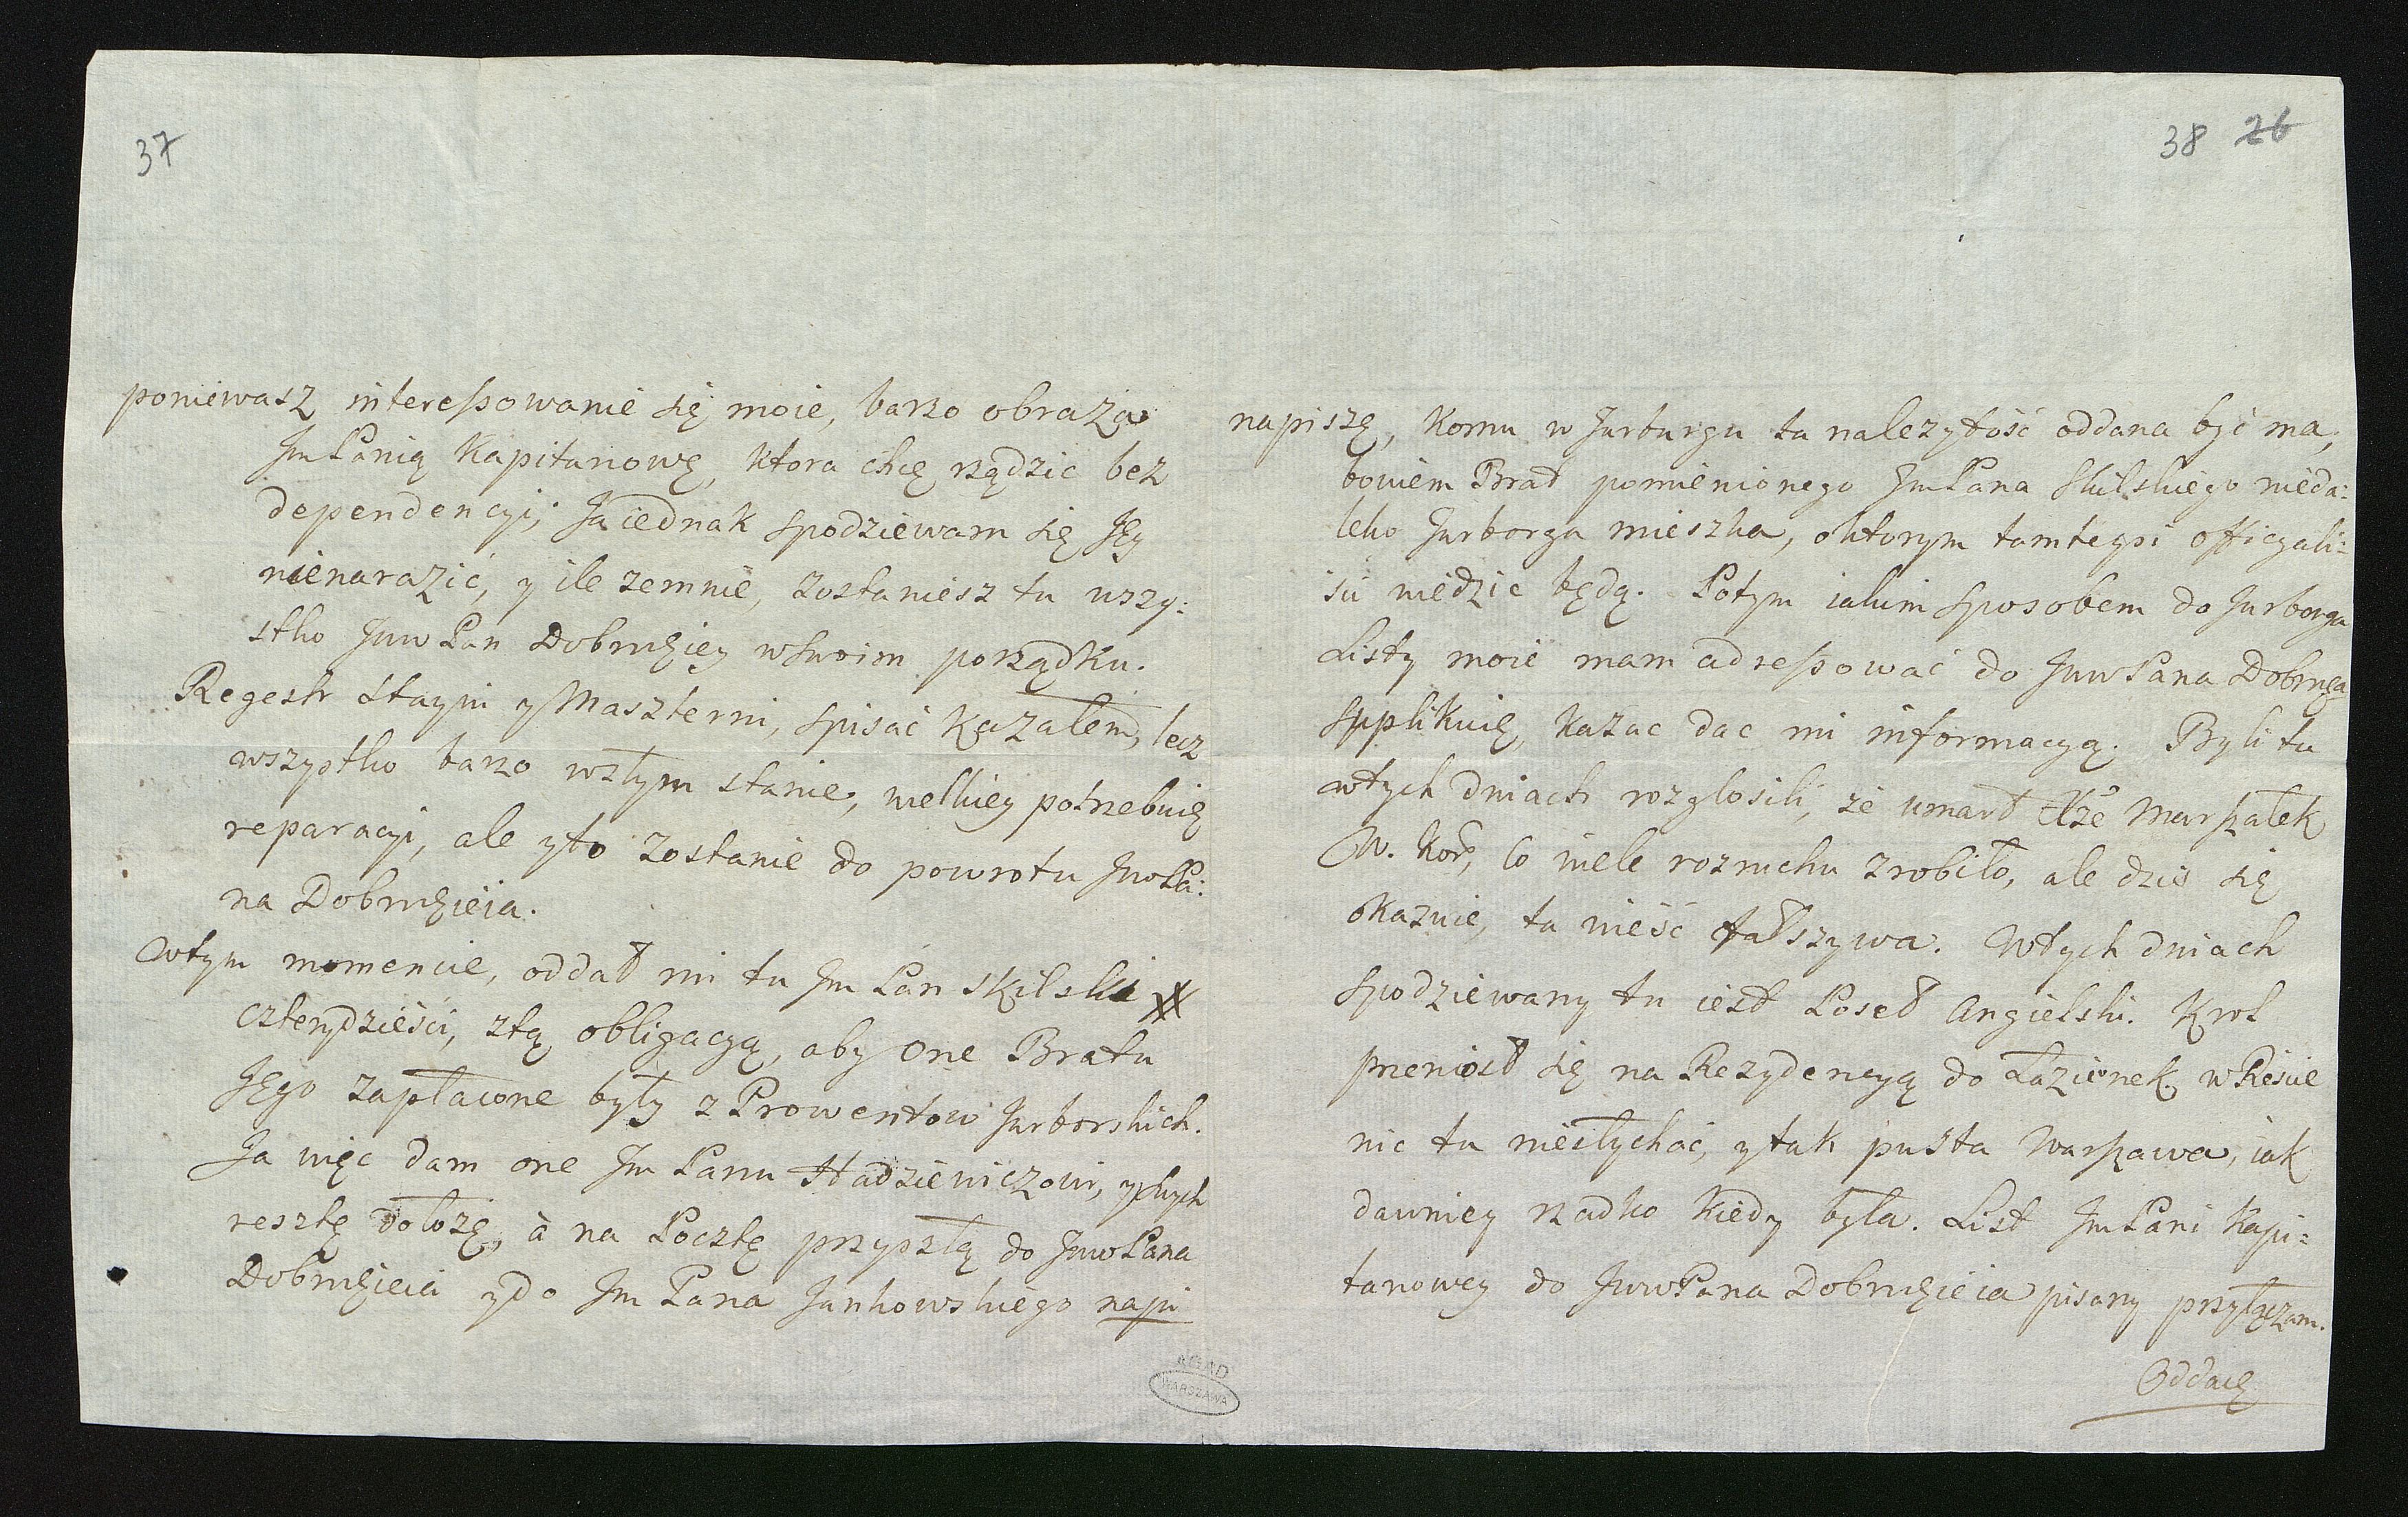 37
poniewasz interessowanie się moie, barzo obraża
Jm Panią Kapitanowę, ktora chcę rządzic bez
dependencyi; Ja iednak spodziewam się Jey
nienarazić, y ile zemnie, zostaniesz tu wszy:
stko Juw Pan Dobrodziey wswoim porządku.
Regestr Stayni y Maszterni, spisać kazałem, lecz
wszystko barzo wzłym stanie, wielkiey potrzebuię
reparacyi, ale yto zostanie do powrotu JuwPa:
na Dobrodzieia.
Wtym momencie, oddał mi tu Jm Pan Skilski #
czterydzieści, ztą obligacyą, aby one Bratu
Jego zapłacone były z Prowentow Jurborskich.
Ja więc dam one Jm Panu Hadziewiczowi, yswych
resztę dołożę, à na Pocztę przyszłą do JuwPana
Dobrodzieia ydo Jm Pana Jankowskiego napi
38 26
napiszę, komu w Jurburgu ta należytość oddana być ma,
bowiem Brat pomienionego JmPana Skilskiego nieda:
leko Jurborga mieszka, oktorym tamteysi officyali:
sci wiedzic będą. Potym iakim sposobem do Jurborga
Listy moie mam adressować do JuwPana Dobrodzieia
supplikuię, kazac dac mi informacyą. Byli tu
wtych dniach rozglosili, że umarł Xże Marszałek
W. Kor, co wiele rozruchu zrobiło, ale dziś się
okazuie, ta wieść fałszywa. Wtych dniach
spodziewany tu iest Poseł Angielski. Krol
przeniosł się na Rezydencyą do Łazienek, wReście
nic tu niesłychać, ytak pusta Warszawa, iak
dawniey rzadko kiedy była. List JmPani Kapi:
tanowey do JuwPana Dobrodzieia pisany przyłączam.
Oddaię
AGAD
WARSZAWA